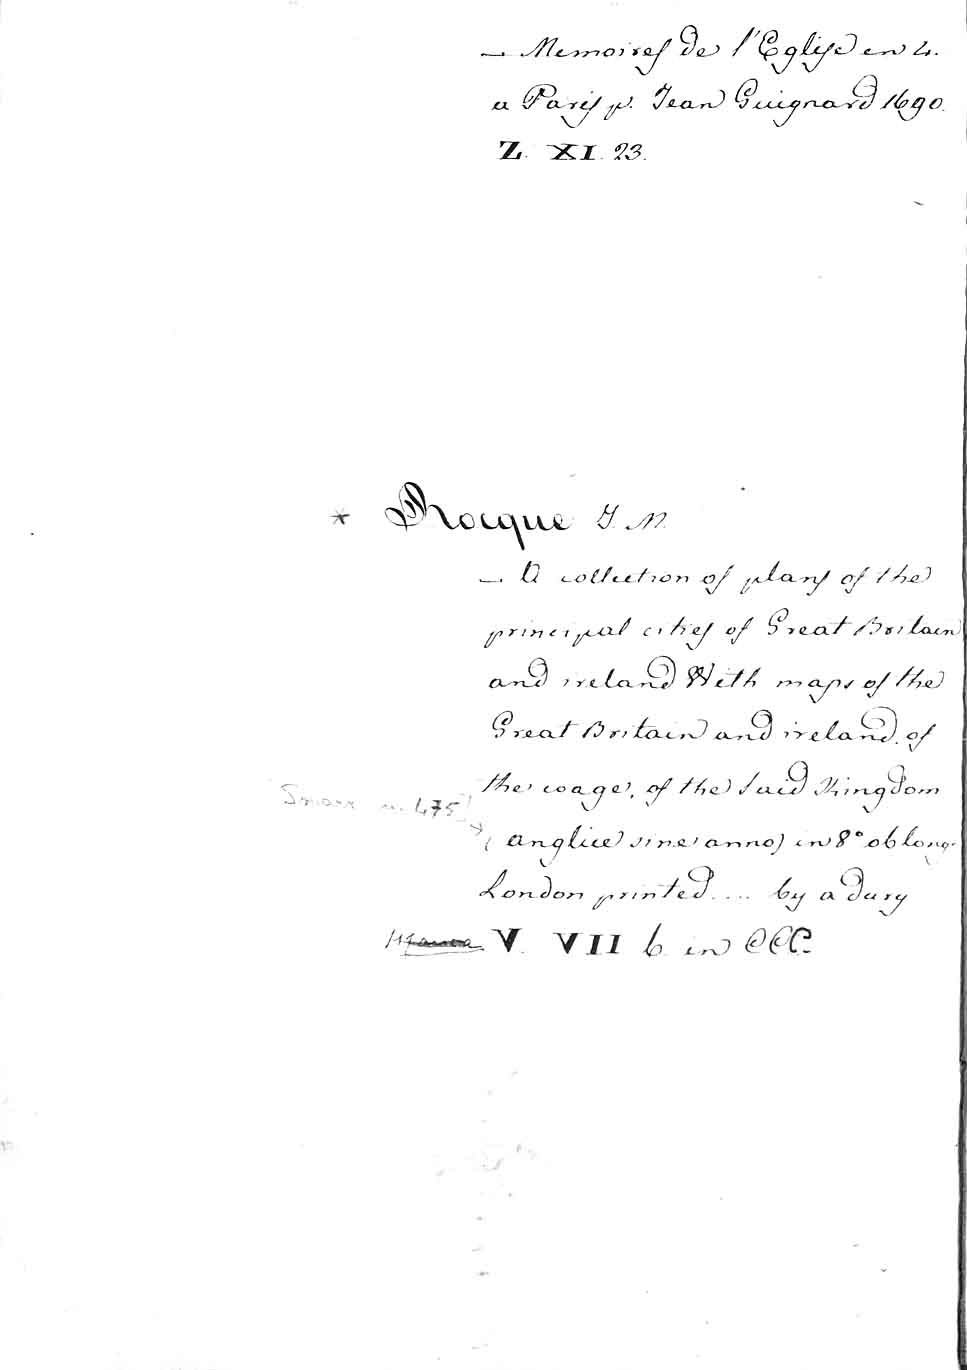 — Memoires de l'Eglise en 4.
a Paris p. Jean Guignard 1690.
Z. XI. 23.
* Rocque J. M.
— A collection of plans of the
principal cities of Great Britain
and ireland With maps of the
Great Britain and ireland. of
the coage, of the said Kingdom
Smarr n. 475
( anglice sine anno) in 8° oblong.
London printed.... by a dury
Manca V. VII 6. in CCC.